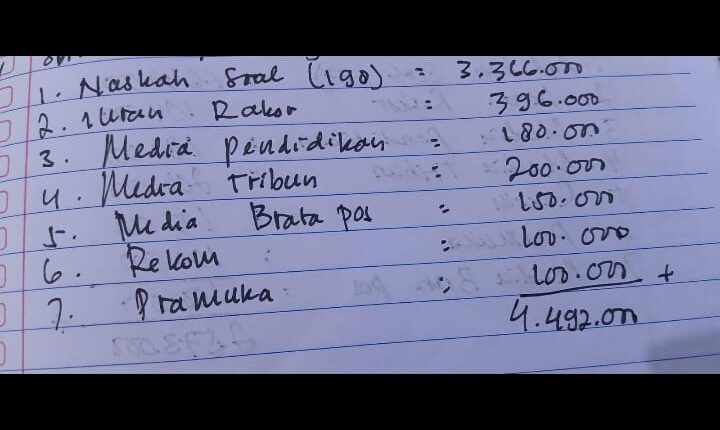 1. Naskah Soal (198) = 3.366.000
2. iuran Rakor = 396.000
3. Media pendidikan = 180.000
4. Media Tribun = 200.000
5. Media Brata pos = 150.000
6. Rekom : = 100.000
7. Pramuka = 100.000 +
4.492.000